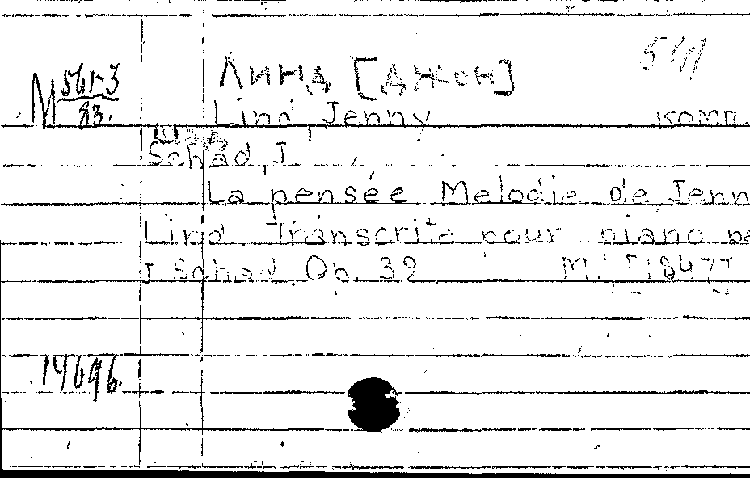 М 56г3/83.
Линд [Джон]
Lind, Jenny комп.
Schad, J.
La pensée. Melodie de Jenn
Lind. Transcrite pour piano pa
J. Schad. Op. 32 M. [1847]
14696.